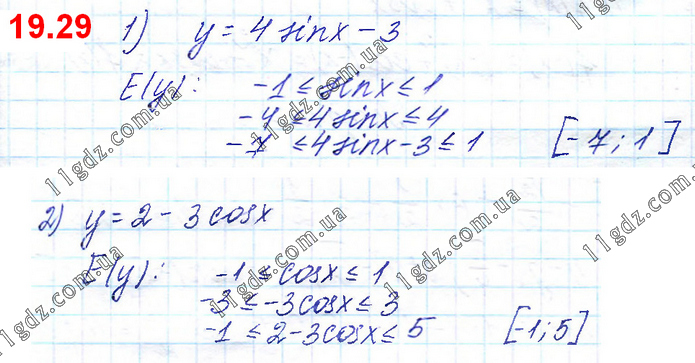 19.29
1) y = 4 sinx - 3
E(y): -1 ≤ sinx ≤ 1
-4 ≤ 4 sinx ≤ 4
-7 ≤ 4 sinx - 3 ≤ 1 [-7; 1]
2) y = 2 - 3cosx
E(y): -1 ≤ cosx ≤ 1
-3 ≤ -3cosx ≤ 3
-1 ≤ 2 - 3cosx ≤ 5 [-1; 5]
11gdz.com.ua
11gdz.com.ua
11gdz.com.ua
11gdz.com.ua
11gdz.com.ua
11gdz.com.ua
11gdz.com.ua